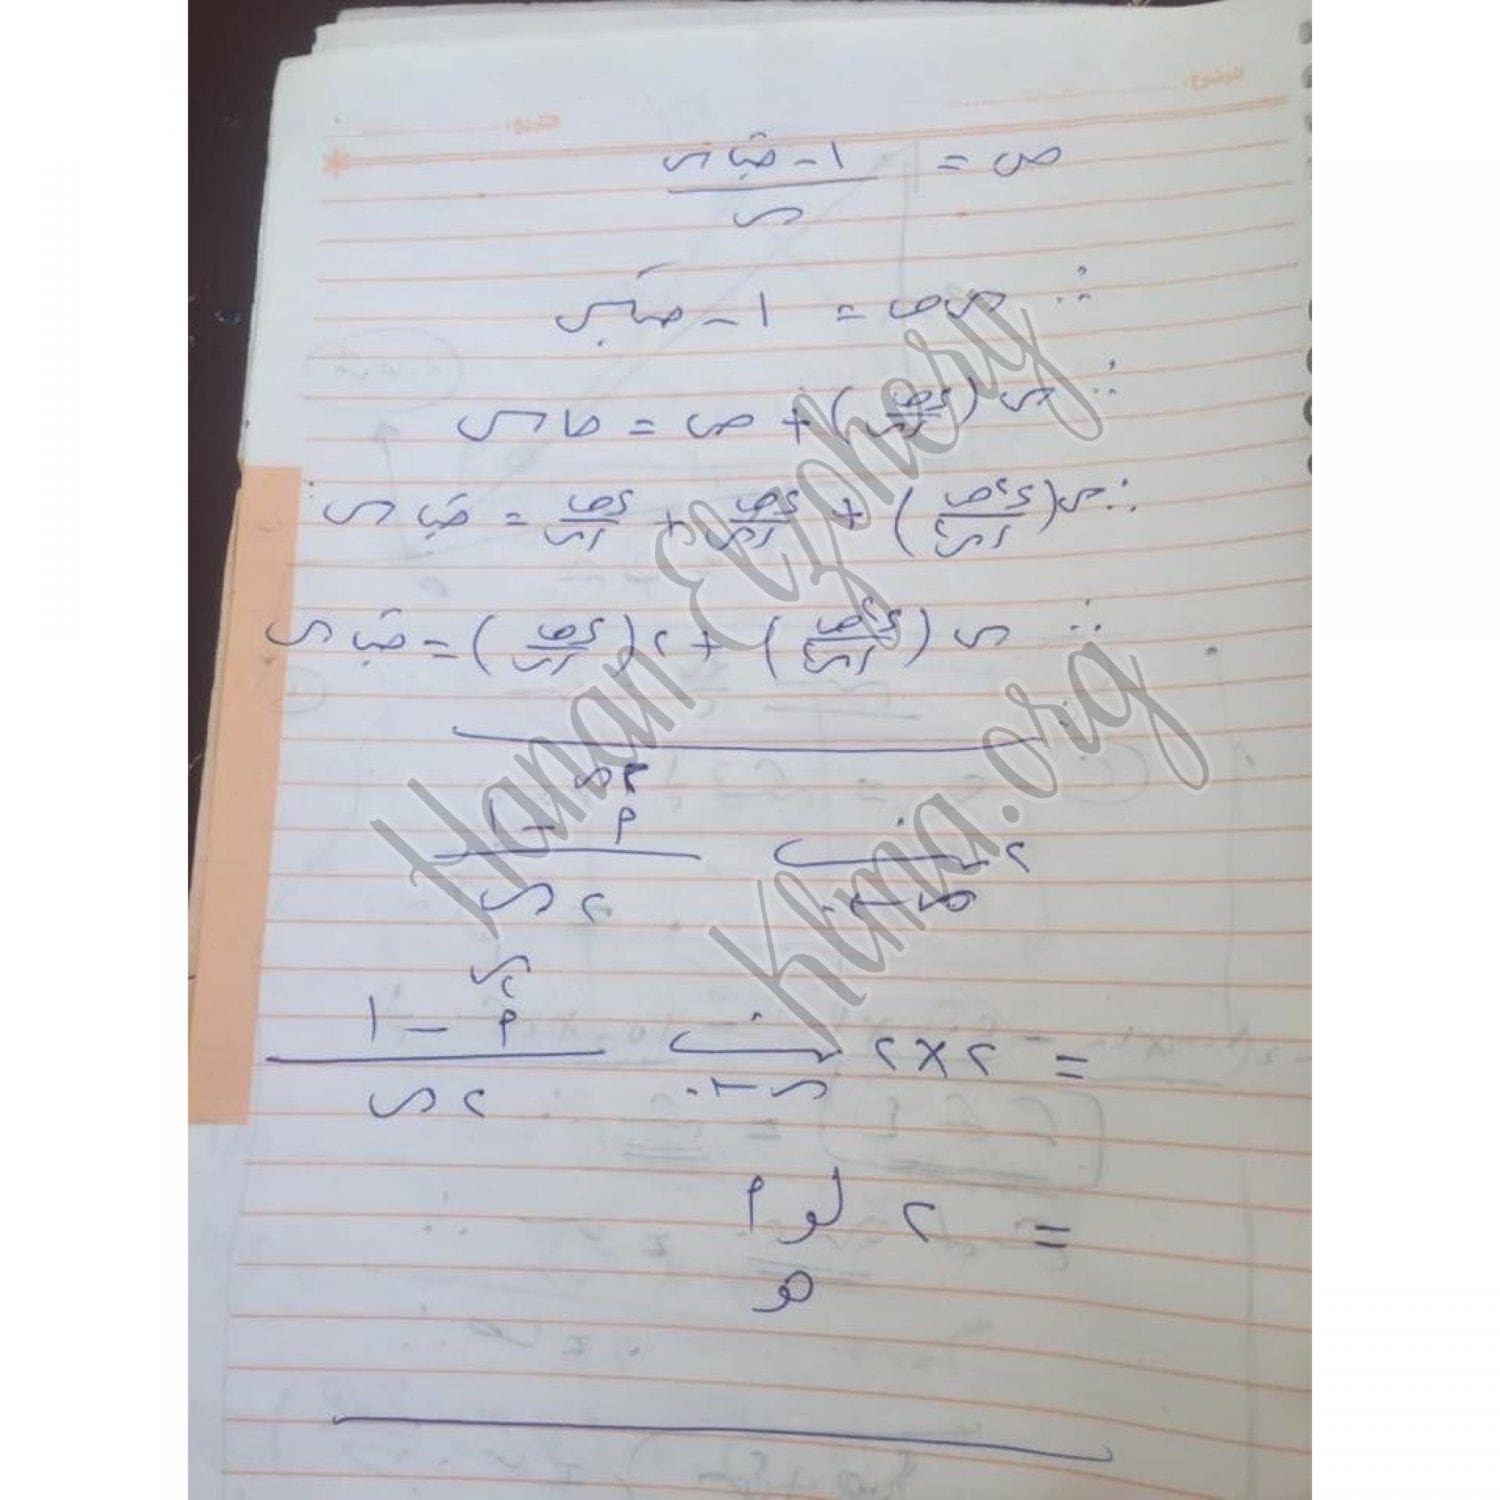 الموضوع:
التاريخ:
ص = (١ - جتا س) / س
∴ س ص = ١ - جتا س
∴ س (ءص/ءس) + ص = حا س
∴ س (ء٢ص/ءس٢) + ءص/ءس + ءص/ءس = جتا س
∴ س (ء٢ص/ءس٢) + ٢ (ءص/ءس) = جتا س
٢ نهــا س←٠ (م^٢س - ١) / ٢ س
= ٢×٢ نهــا س←٠ (م^٢س - ١) / ٢ س
= ٢ لو م
ه
Hanan Elzohery
Klma.org